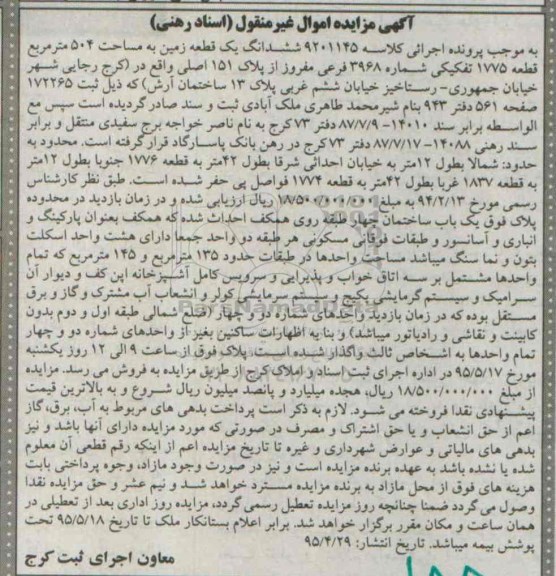 آگهی مزایده اموال غیرمنقول (اسناد رهنی)
به موجب پرونده اجرائی کلاسه ۹۲۰۱۱۴۵ ششدانگ یک قطعه زمین به مساحت ۵۰۴ مترمربع
قطعه ۱۷۷۵ تفکیکی شماره ۳۹۶۸ فرعی مفروز از پلاک ۱۵۱ اصلی واقع در (کرج رجایی شهر
خیابان جمهوری- رستاخیز خیابان ششم غربی پلاک ۱۳ ساختمان آرش) که ذیل ثبت ۱۷۲۲۶۵
صفحه ۵۶۱ دفتر ۹۴۳ بنام شیرمحمد طاهری ملک آبادی ثبت و سند صادر گردیده است سپس مع
الواسطه برابر سند ۱۴۰۱۰-۸۷/۷/۹ دفتر ۷۳ کرج به نام ناصر خواجه برج سفیدی منتقل و برابر
سند رهنی ۱۴۰۸۸-۸۷/۷/۱۷ دفتر ۷۳ کرج در رهن بانک پاسارگاد قرار گرفته است. محدود به
حدود: شمالا بطول ۱۲متر به خیابان احداثی شرقا بطول ۴۲متر به قطعه ۱۷۷۶ جنوبا بطول ۱۲متر
به قطعه ۱۸۳۷ غربا بطول ۴۲متر به قطعه ۱۷۷۴ فواصل پی حفر شده است. طبق نظر کارشناس
رسمی مورخ ۹۴/۲/۱۳ به مبلغ ۱۸/۵۰۰/۰۰۰/۰۰۰ ریال ارزیابی شده و در زمان بازدید در محدوده
پلاک فوق یک باب ساختمان چهار طبقه روی همکف احداث شده که همکف بعنوان پارکینگ و
انباری و آسانسور و طبقات فوقانی مسکونی هر طبقه دو واحد جمعا دارای هشت واحد اسکلت
بتون و نما سنگ میباشد مساحت واحدها در طبقات حدود ۱۳۵ مترمربع و ۱۴۵ مترمربع که تمام
واحدها مشتمل بر سه اتاق خواب و پذیرایی و سرویس کامل آشپزخانه اپن کف و دیوار آن
سرامیک و سیستم گرمایشی پکیج و سیستم سرمایشی کولر و انشعاب آب مشترک و گاز و برق
مستقل بوده که در زمان بازدید واحدهای شماره دو و چهار (ضلع شمالی طبقه اول و دوم بدون
کابینت و نقاشی و رادیاتور میباشد) و بنا به اظهارات ساکنین بغیر از واحدهای شماره دو و چهار
تمام واحدها به اشخاص ثالث واگذار شده است. پلاک فوق از ساعت ۹ الی ۱۲ روز یکشنبه
مورخ ۹۵/۵/۱۷ در اداره اجرای ثبت اسناد و املاک کرج از طریق مزایده به فروش می رسد. مزایده
از مبلغ ۱۸/۵۰۰/۰۰۰/۰۰۰ ریال، هجده میلیارد و پانصد میلیون ریال شروع و به بالاترین قیمت
پیشنهادی نقدا فروخته می شود. لازم به ذکر است پرداخت بدهی های مربوط به آب، برق، گاز
اعم از حق انشعاب و یا حق اشتراک و مصرف در صورتی که مورد مزایده دارای آنها باشد و نیز
بدهی های مالیاتی و عوارض شهرداری و غیره تا تاریخ مزایده اعم از اینکه رقم قطعی آن معلوم
شده یا نشده باشد به عهده برنده مزایده است و نیز در صورت وجود مازاد، وجوه پرداختی بابت
هزینه های فوق از محل مازاد به برنده مزایده مسترد خواهد شد و نیم عشر و حق مزایده نقدا
وصول می گردد ضمنا چنانچه روز مزایده تعطیل رسمی گردد، مزایده روز اداری بعد از تعطیلی در
همان ساعت و مکان مقرر برگزار خواهد شد. برابر اعلام بستانکار ملک تا تاریخ ۹۵/۵/۱۸ تحت
پوشش بیمه میباشد. تاریخ انتشار: ۹۵/۴/۲۹
معاون اجرای ثبت کرج